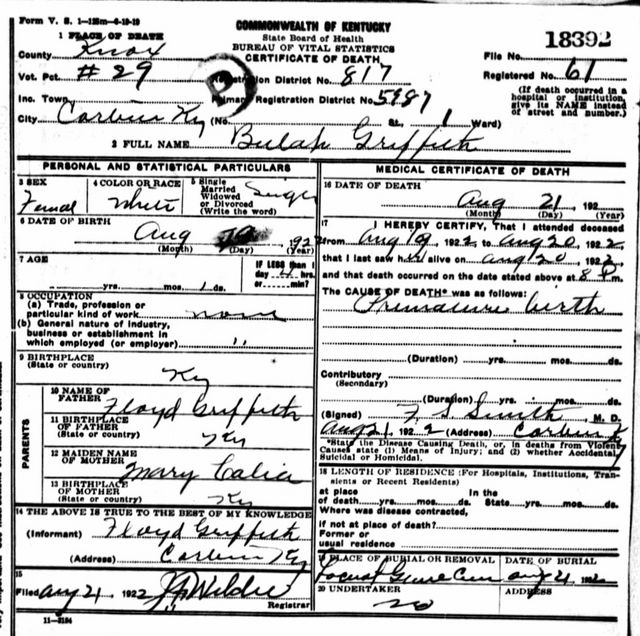 Form V. S. 1—125m—6-19-19
COMMONWEALTH OF KENTUCKY
State Board of Health
BUREAU OF VITAL STATISTICS
CERTIFICATE OF DEATH
1 PLACE OF DEATH
County Knox
Vot. Pct. #29
Inc. Town
City Corbin Ky (No. St. 1 Ward)
Registration District No. 817
Primary Registration District No. 5987
File No. 18392
Registered No. 61
(If death occurred in a
hospital or institution,
give its NAME instead
of street and number.)
2 FULL NAME Bulah Griffith
PERSONAL AND STATISTICAL PARTICULARS
3 SEX Femal
4 COLOR OR RACE White
5 Single
Married
Widowed
or Divorced
(Write the word) Singl
6 DATE OF BIRTH
Aug 192
(Month) (Day) (Year)
7 AGE
yrs. mos. 1 ds.
IF LESS than 1
day hrs.
or min.?
8 OCCUPATION
(a) Trade, profession or
particular kind of work none
(b) General nature of industry,
business or establishment in
which employed (or employer) "
9 BIRTHPLACE
(State or country) Ky
PARENTS
10 NAME OF
FATHER Floyd Griffith
11 BIRTHPLACE
OF FATHER
(State or country) Ky
12 MAIDEN NAME
OF MOTHER Mary
13 BIRTHPLACE
OF MOTHER
(State or country) Ky
14 THE ABOVE IS TRUE TO THE BEST OF MY KNOWLEDGE
(Informant) Floyd Griffith
(Address) Corbin Ky
15
Filed Aug 21, 1922
Registrar
11—3184
MEDICAL CERTIFICATE OF DEATH
16 DATE OF DEATH
Aug 21, 192
(Month) (Day) (Year)
17 I HEREBY CERTIFY, That I attended deceased
from Aug 19, 1922 to Aug 20, 1922
that I last saw her alive on Aug 20, 1922,
and that death occurred on the date stated above at 8 P m.
The CAUSE OF DEATH* was as follows:
Premature birth
(Duration) yrs. mos. ds.
Contributory
(Secondary)
(Duration) yrs. mos. ds.
(Signed) Smith, M. D.
Aug 21, 1922 (Address) Corbin Ky
*State the Disease Causing Death, or, in deaths from Violent
Causes state (1) Means of Injury; and (2) whether Accidental,
Suicidal or Homicidal.
18 LENGTH OF RESIDENCE (For Hospitals, Institutions, Tran-
sients or Recent Residents)
at place In the
of death yrs. mos. ds. State yrs. mos. ds.
Where was disease contracted,
if not at place of death?
Former or
usual residence
19 PLACE OF BURIAL OR REMOVAL
Locust Cem
DATE OF BURIAL
Aug 21, 192
20 UNDERTAKER
no
ADDRESS